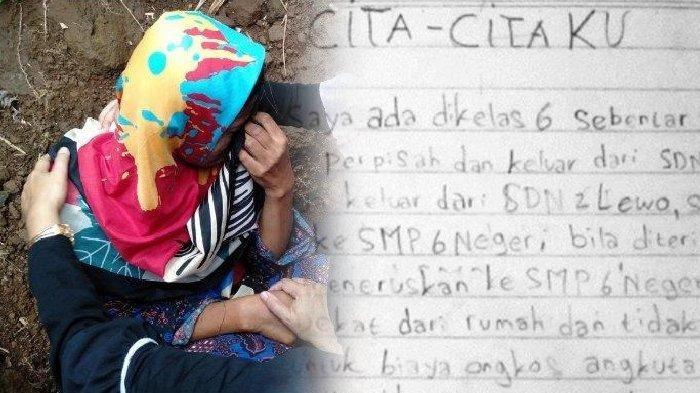 CITA-CITAKU
saya ada dikelas 6 sebentar
perpisah dan keluar dari SDN
keluar dari SDN 2 Lewo, s
ke SMP 6 Negeri bila diter
eneruskan ke SMP 6 Nege
ekat dari rumah dan tidak
ntuk biaya ongkos angkuta